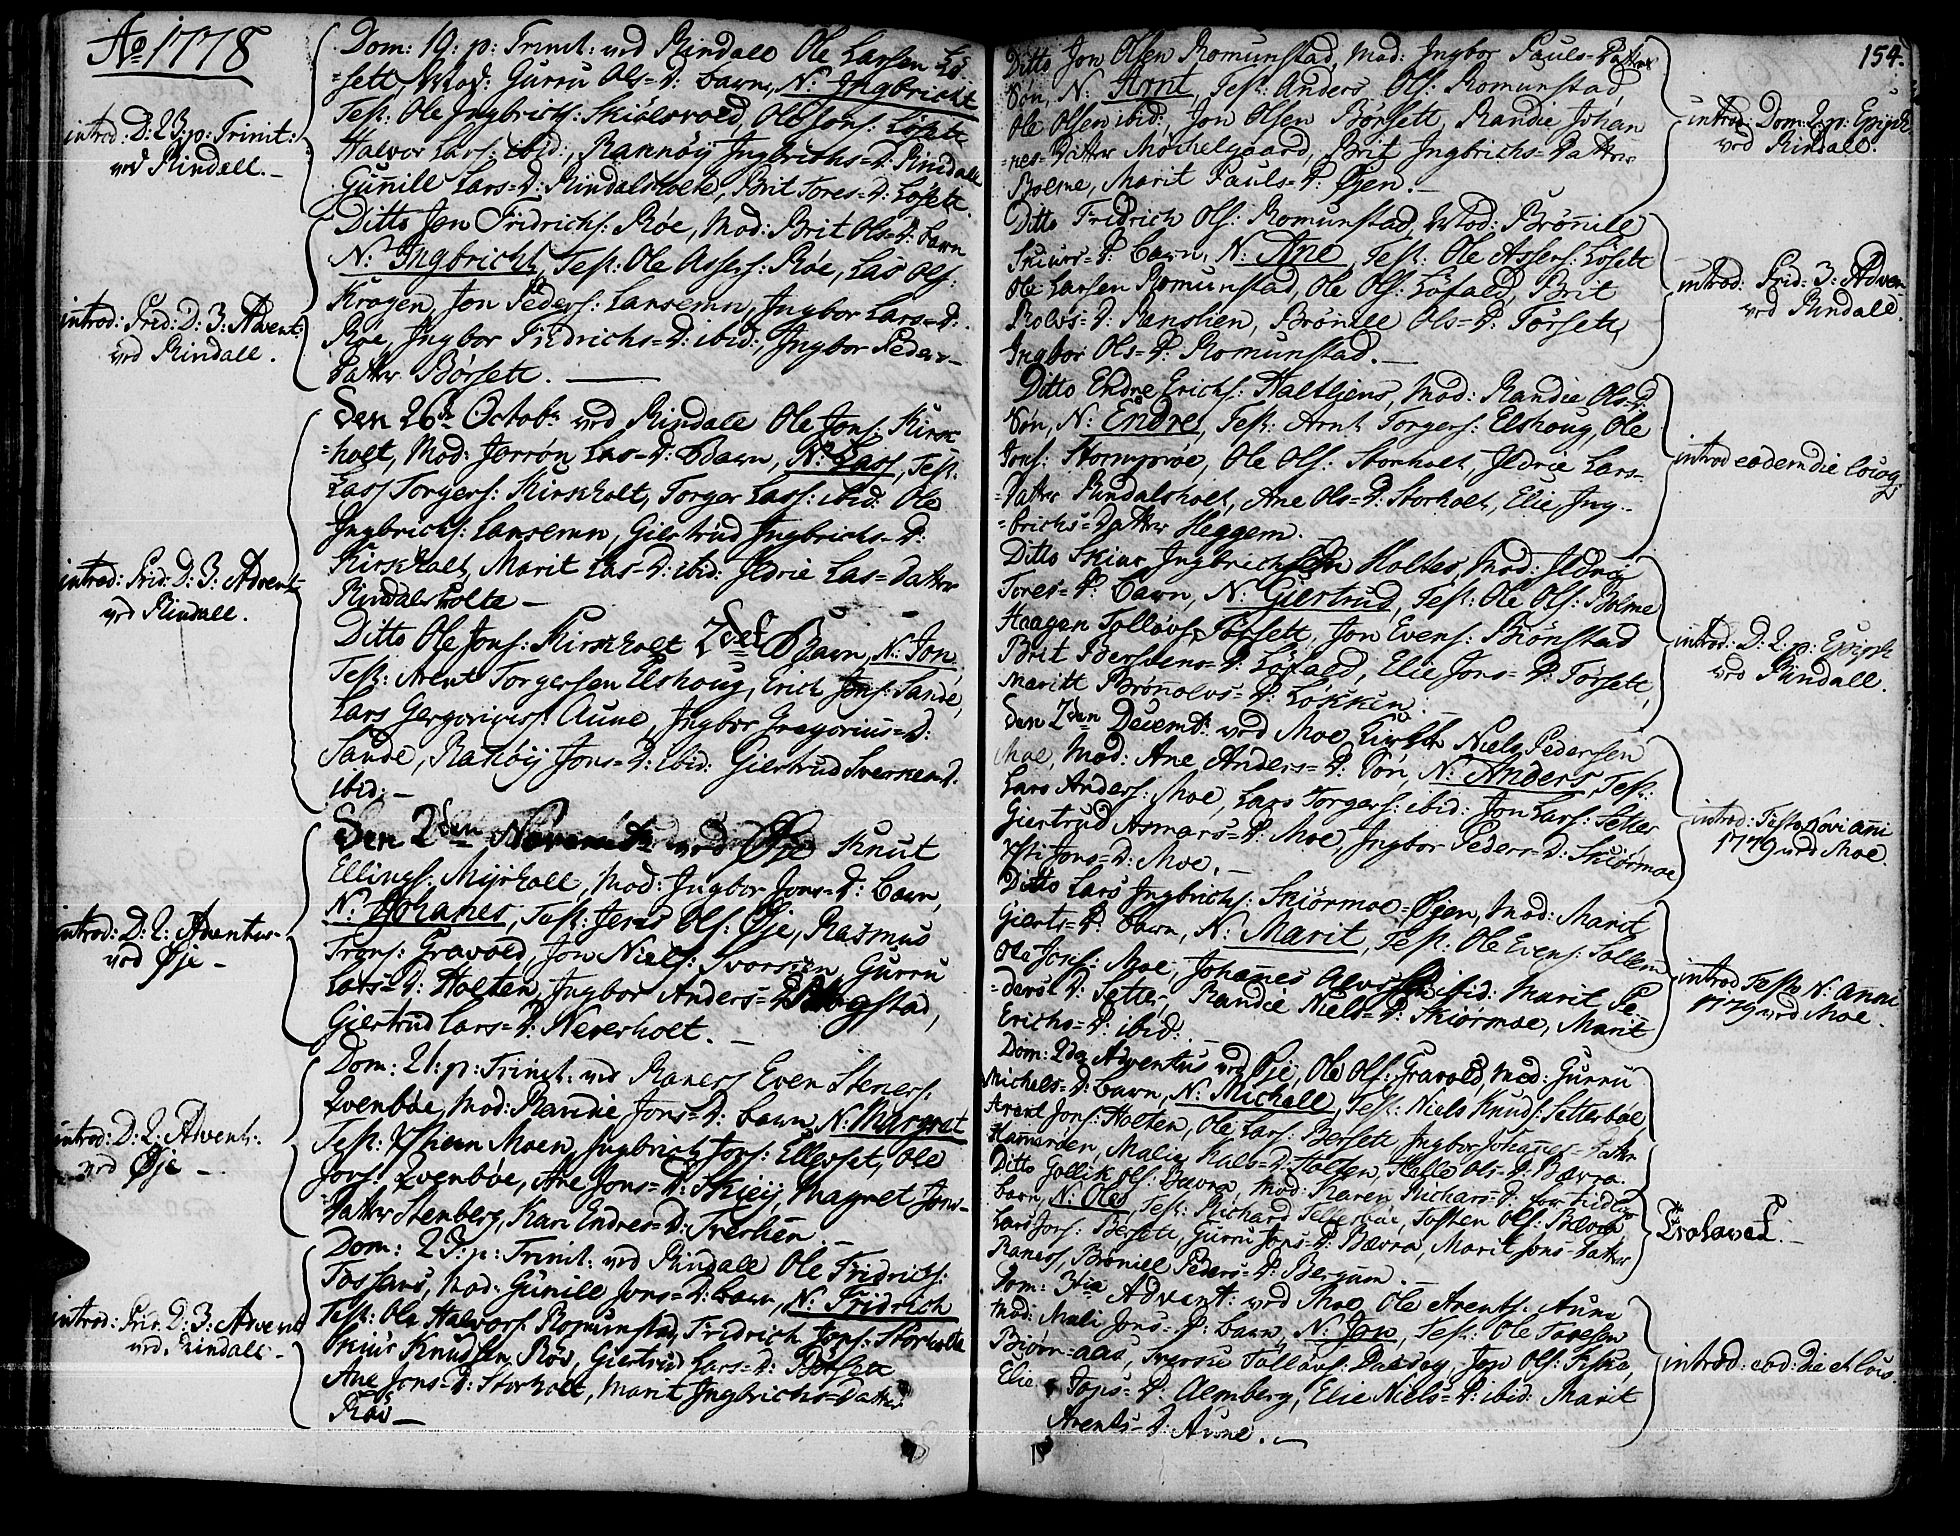 Ao 1778
Dom: 19: p: Trinit: ved Rindall Ole Larsen Lö
=sett, Mod: Gurru Ols=D: barn, N: Ingbricht
Test: Ole Ingbrichts: Skiölsvold, Ole Jons: Lösett
Halvor Lars: ibid:, Rannöy Ingbrichs=D: Rindall
Gunnild Lars=D: Rindalsholt, Brit Tores=D: Lösett.
introd: D: 23: p: Trinit:
ved Rindall. -
Ditto Jon Fridrichs: Röe, Mod: Brit Ols=D: barn
N: Ingbricht, Test: Ole Assers: Röe, Lars Ols:
Kragen, Jon Peders: Lansemn, Ingbor Lars=D:
Roe, Ingbor Fredrichs=D: ibid:, Ingbor Peders-
Datter Börsett.
introd: Frid: D: 3: Advent:
ved Rindall.
Den 26de Octobr ved Rindall Ole Jons: Kirsk
=holt, Mod: Jorrön Lars=D: barn, N: Lars, Test:
Lars Torgers: Kirskholt, Torger Lars: ibid: Ole
Ingbrichs: Lansemn, Giertrud Ingbrichs=D:
Kirskholt, Marit Lars=D: ibid: Ildrie Lars=Datter
Rindalsholte -
introd: Frid: D: 3: Advent
ved Rindall.
Ditto Ole Jons: Kirskholt 2det Barn, N: Jon
Test: Arent Torgersen Elshoug, Erich Jons: Sande,
Lars Gergorius: Aune, Ingbor Gregorius=D:
Sande, Rannöy Jons=D: ibid: Giertrud Sverkes D:
ibid: -
Den 2den Novembr ved Øje Knut
Ellings: Myrholl, Mod: Ingbor Jons=D: barn,
N: Johanes, Test: Jens Ols: Øje, Rasmus
Trons: Gravold, Jon Niels: Svorsien, Gurru
Lars=D: Holten, Ingbor Anders=D: Bogstad,
Giertrud Lars=D: Neverholt. -
introd: D: 2: Adventus
ved Øje -
Dom: 21: p: Trinit: ved Ranes Even Steners:
Qvenböe, Mod: Randie Jons=D: barn N: Margret
Test: Moen, Ingbricht Jons: Ellesset, Ole
Jons: Qvenböe, Ane Jons=D: Skiey, Magnet Jons-
Datter Stenberg, Kari Endres=D: Treekien. -
introd: D: 2: Advent:
ved Øje -
Dom: 23: p: Trinit: ved Rindall Ole Fridrichs:
Fossand, Mod: Gunild Jons=D: barn, N: Fridrich
Test: Ole Halvors: Romunstad, Fridrich Jons: Storholte
Skiur Knudsen Röv, Giertrud Lars=D: Börsett
Ane Jons=D: Storholt, Marit Ingbrichs=Datter
Röv -
introd: Frid: D: 3: Advent
ved Rindall -
154.
Ditto Jon Olsen Romunstad, Mod: Ingbor Pauls=Datter
Sön, N: Arnt, Test: Anders Ols: Romunstad
Ole Olsen ibid: Jon Olsen Börsett, Randie Johan
=nes=Datter Mochelgaard, Brit Ingbrichs=Datter
Bolme, Marit Pauls=D: Øyen. -
introd: Dom: 2: p: Epiph
ved Rindall.
Ditto Fridrich Ols: Romunstad, Mod: Brönild
Skiurs=D: barn, N: Ane, Test: Ole Assers: Lösett
Ole Larsen Romunstad, Ole Ols: Löfald, Brit
Rolvs=D: Ranslien, Brönild Ols=D: Törsett,
Ingbor Ols=D: Romunstad. -
introd: Frid: 3: Adven
ved Rindall.
Ditto Endre Erichs: Haltliens, Mod: Randie Ols=D:
Sön, N: Endre, Test: Arnt Torgers: Elshoug, Ole
Jons: Stomyröe, Ole Ols: Storholt, Ildrie Lars-
=Datter Rindalsholt, Ane Ols=D: Storholt, Elie Ing-
=brichs=Datter Heggem.
introd eodem die loiog:
Ditto Skiur Ingbrichsen Holtes, Mod: Ildri
Tores=D: barn, N: Giertrud, Test: Ole Ols: Bolme
Haagen Tollövs: Törsett, Jon Evens: Brönstad
Brit Iversdens=D: Löfald, Elie Jons=D: Törsett,
Maritt Brönolvs=D: Løkken. -
introd: D: 2: p: Epiph
ved Rindall.
Den 7den Decembr ved Moe Kirch Niels Pedersen
Moe, Mod: Ane Anders=D: Sön, N: Anders, Test:
Lars Anders: Moe, Lars Torgers: ibid: Jon Lars: Setter
Giertrud Asmars=D: Moe, Ingbor Peders=D: Skiörmoe
Jons=D: Moe. -
introd: Festo Novi anni
1779 ved Moe.
Ditto Lars Ingbrichs: Skiörmoe=Øyen, Mod: Marit
Gierts=D: barn, N: Marit, Test: Ole Evens: Sollem
Ole Jons: Moe, Johannes ibid: Marit Pe-
=ders D: Setter, Randie Niels=D: Skiörmoe, Marit
Erichs=D: ibid: -
introd Festo N: anni
1779 ved Moe.
Dom: 2da Adventus ved Øje, Ole Ols: Gravold, Mod: Gurru
Michels=D: barn, N: Michell, Test: Niels Knuds: Setterböe
Arent Jons: Holten, Ole Lars: Bersett, Ingbor Johanes=Datter
Hammerden, Malie Hals=D: Holten, Halle Ols=D: Bævra.
Ditto Gollik Ols: Bævra, Mod: Karen Richars=D: for tidlig
barn, N: Ole, Test: Richard Setterböe, Tosten Ols: Bævra
Lars Jons: Bersett, Gurru Jons=D: Bævra, Marit Jons=Datter
Ranes, Brönild Peders=D: Bergum. -
Dom: 3tia Advent: ved Moe Ole Arents: Aune
Mod: Mali Jons=D: barn, N: Jon, Test: Ole Taresen
Biörn=aas, Sverke Tollövs: Dalsög, Jon Ols: Kiska,
Elie Jons=D: Almberg, Elie Niels=D: ibid: Marit
Arents=D: Aune. -
introd: eod: die et lois